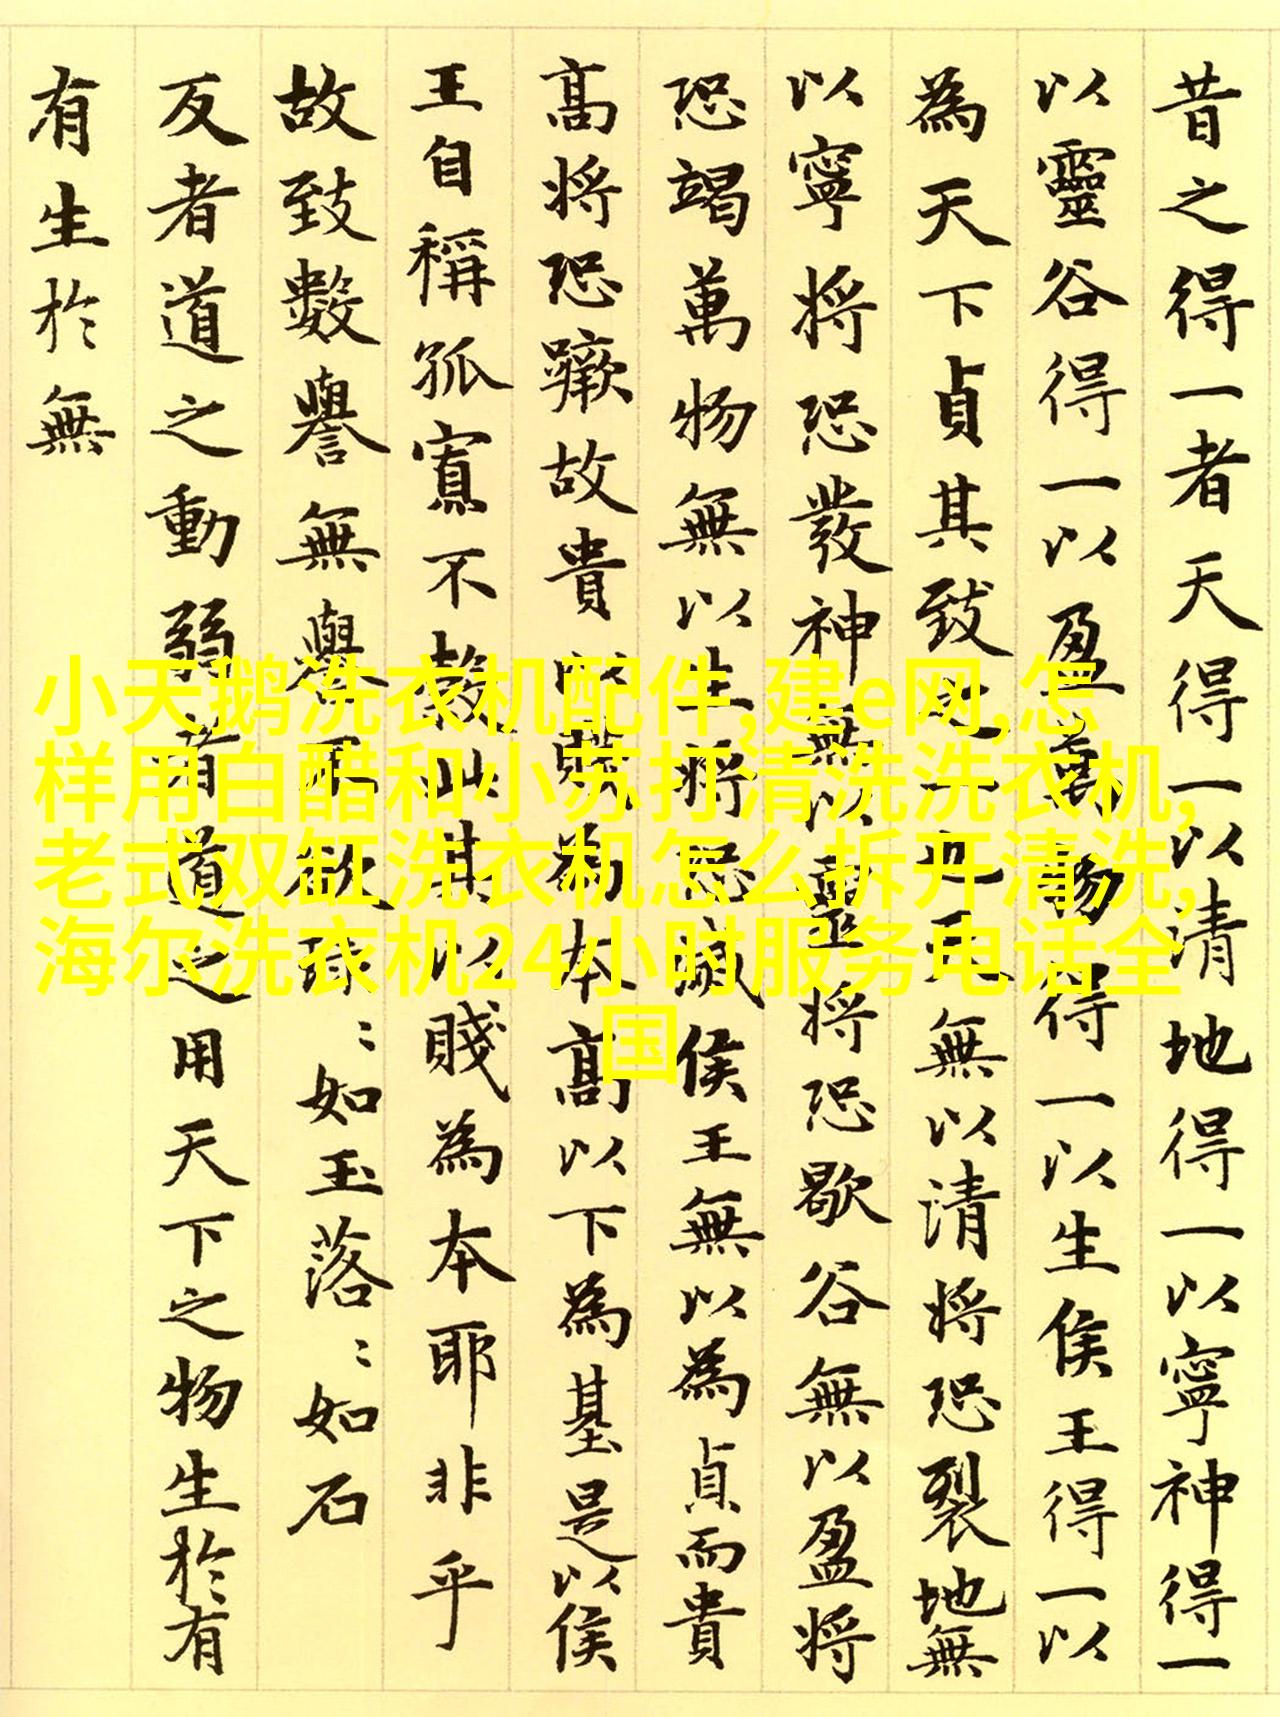 昔之得一者天得一以清地得一以寧神得一
以靈谷得一以盈萬物得一以生侯王得一以
為天下貞其致之一也天無以清將恐裂地無
以寧將恐發神無以靈將恐歇谷無以盈將
恐竭萬物無以生將恐滅侯王無以為貞而貴
高將恐蹶故貴以賤為本高以下為基是以侯
王自稱孤寡不穀此其以賤為本耶非乎
故致數譽無譽不欲琭〻如玉落〻如石
反者道之動弱者道之用天下之物生於有
有生於無
小天鹅洗衣机配件,建e网,怎
样用白醋和小苏打清洗洗衣机,
老式双缸洗衣机怎么拆开清洗,
海尔洗衣机24小时服务电话全
国